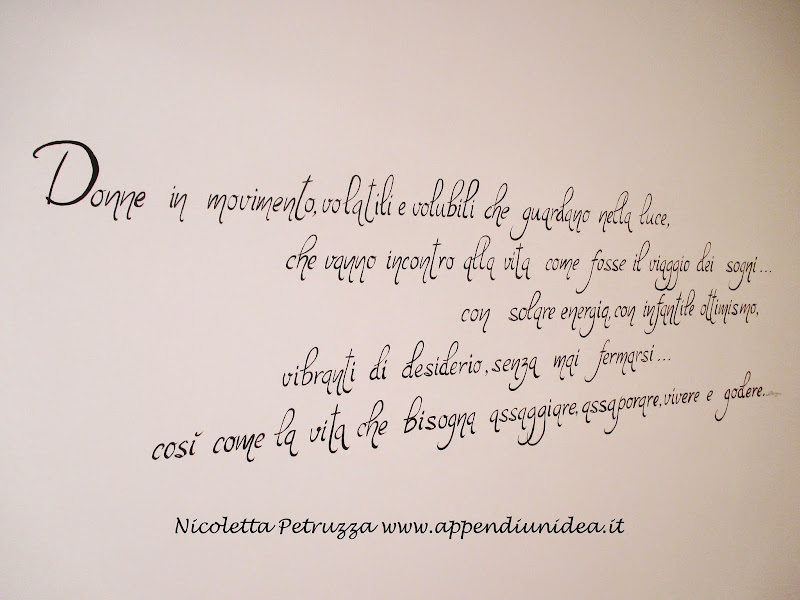 Donne in movimento, volatili e volubili che guardano nella luce,
che vanno incontro alla vita come fosse il viaggio dei sogni...
con solare energia, con infantile ottimismo,
vibranti di desiderio, senza mai fermarsi...
così come la vita che bisogna assaggiare, assaporare, vivere e godere...
Nicoletta Petruzza www.appendiunidea.it